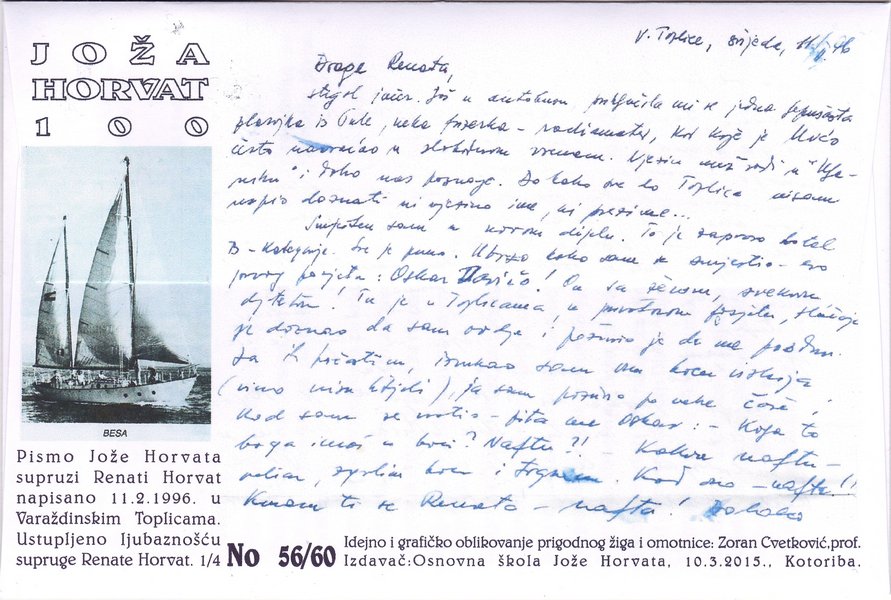 JOŽA
HORVAT
100
BESA
Pismo Jože Horvata
supruzi Renati Horvat
napisano 11.2.1996. u
Varaždinskim Toplicama.
Ustupljeno ljubaznošću
supruge Renate Horvat. 1/4
V. Toplice, srijeda,
Draga Renata,
stigoh jučer. Još u autobusu priključila mi se jedna
plavojka iz Tule, neka frizerka - radioamater, kod koje je
često navraćao u slobodnom vremenu. Njezin muž radi u "Ulja-
niku" i dobro nas poznaje. Do Toplica nisam
uspio doznati ni njezino ime, ni prezime...
Smješten sam u novom dijelu. To je zapravo hotel
B-kategorije. Sve je puno. Ubrzo kako sam se smjestio - evo
prvog posjeta: Oskar Davičo! On sa ženom,
djetetom! Tu je u Toplicama, u privatnom posjetu, slučajno
je doznao da sam ovdje i požurio je da me pozdravi.
Da ih počastim, izvukao sam onu bocu viskija
(vino nisu htjeli), ja sam pošao po neke čaše,
kad sam se vratio - pita me Oskar: - Koja to
boga imaš u boci? Naftu?! - Kakvu naftu -
velim, zgrabim bocu i trgnem. Kad ono - nafta!!
Kunem ti se Renata - nafta! Dakako
No 56/60
Idejno i grafičko oblikovanje prigodnog žiga i omotnice: Zoran Cvetković,prof.
Izdavač:Osnovna škola Jože Horvata, 10.3.2015., Kotoriba.